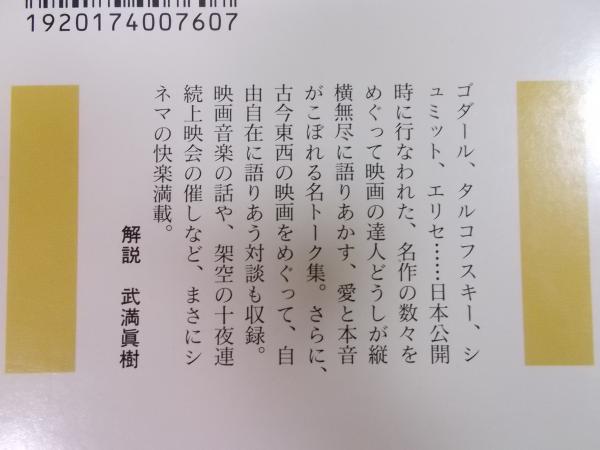 1920174007607
ゴダール、タルコフスキー、シ
ュミット、エリセ……日本公開
時に行なわれた、名作の数々を
めぐって映画の達人どうしが縦
横無尽に語りあかす、愛と本音
がこぼれる名トーク集。さらに、
古今東西の映画をめぐって、自
由自在に語りあう対談も収録。
映画音楽の話や、架空の十夜連
続上映会の催しなど、まさにシ
ネマの快楽満載。
解説　武満眞樹